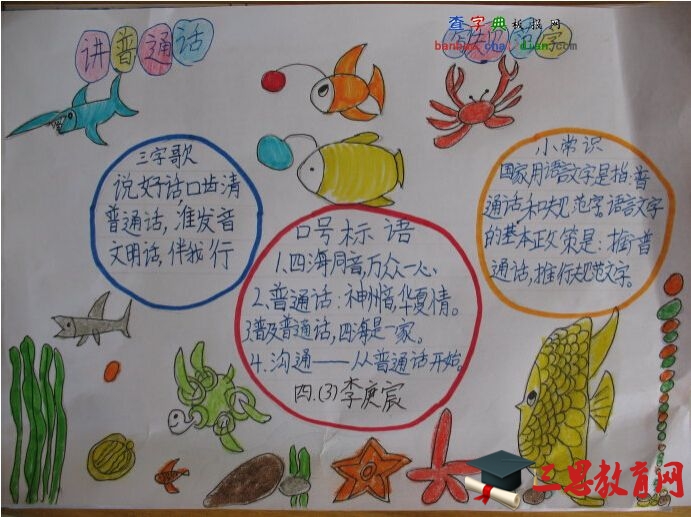 讲普通话
写规范字
查字典板报网
banbao.chazidian.com
三字歌
说好话口齿清
普通话,准发音
文明话,伴我行
口号标语
1.四海同音,万众一心、
2.普通话:神州音,华夏情。
3.普及普通话,四海是一家。
4.沟通——从普通话开始。
四.(3)李庚宸
小常识
国家用语言文字是指:普
通话和规范字.语言文字
的基本政策是:推广普
通话,推行规范文字。
三思教育网